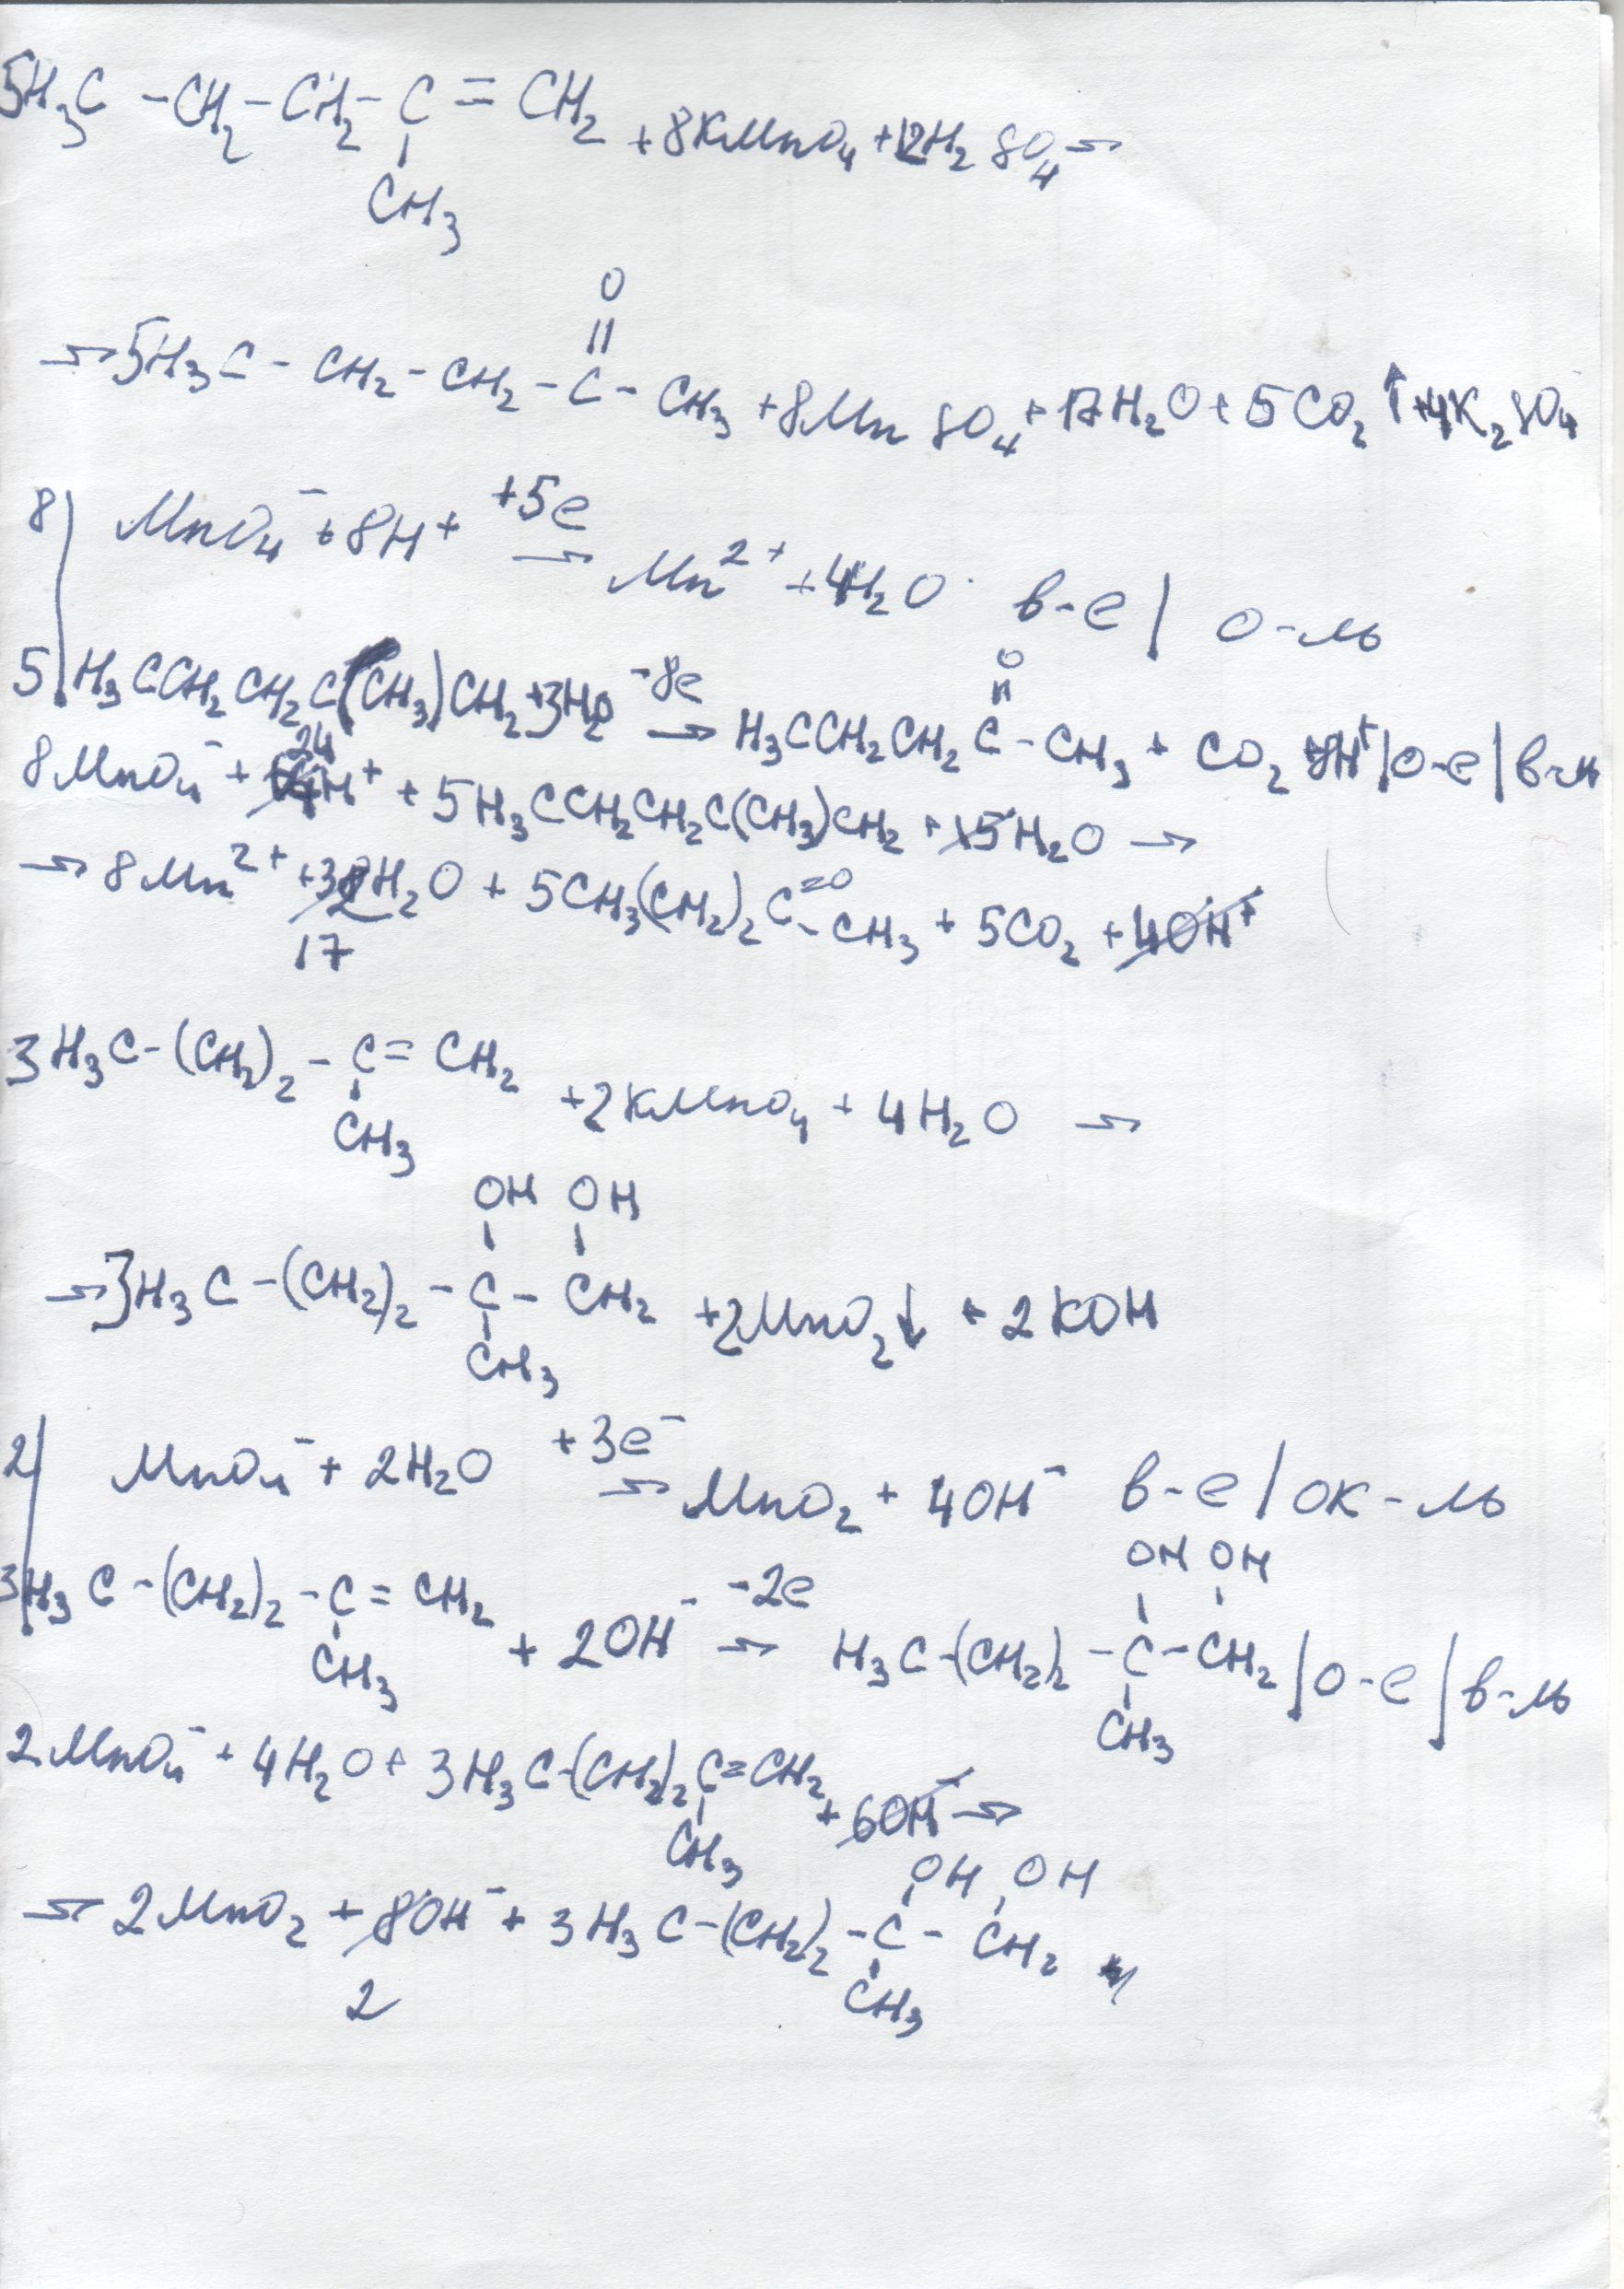 5H₃C - CH₂ - CH₂ - C = CH₂ + 8KMnO₄ + 12H₂SO₄ →
CH₃
O
→ 5H₃C - CH₂ - CH₂ - C - CH₃ + 8MnSO₄ + 17H₂O + 5CO₂↑ + 4K₂SO₄
8| MnO₄⁻ + 8H⁺ +5e → Mn²⁺ + 4H₂O в-е | о-ль
O
5| H₃CCH₂CH₂C(CH₃)CH₂ + 3H₂O -8e → H₃CCH₂CH₂C - CH₃ + CO₂ + 8H⁺ | о-е | в-ль
24
8MnO₄⁻ + 64H⁺ + 5H₃CCH₂CH₂C(CH₃)CH₂ + 15H₂O →
→ 8Mn²⁺ + 32H₂O + 5CH₃(CH₂)₂C=O - CH₃ + 5CO₂ + 40H⁺
17
3H₃C - (CH₂)₂ - C = CH₂ + 2KMnO₄ + 4H₂O →
CH₃
OH OH
→ 3H₃C - (CH₂)₂ - C - CH₂ + 2MnO₂↓ + 2KOH
CH₃
2| MnO₄⁻ + 2H₂O +3e⁻ → MnO₂ + 4OH⁻ в-е | ок-ль
OH OH
3| H₃C - (CH₂)₂ - C = CH₂ + 2OH⁻ -2e → H₃C - (CH₂)₂ - C - CH₂ | о-е | в-ль
CH₃ CH₃
2MnO₄⁻ + 4H₂O + 3H₃C - (CH₂)₂C = CH₂ + 6OH⁻ →
CH₃
OH OH
→ 2MnO₂ + 8OH⁻ + 3H₃C - (CH₂)₂ - C - CH₂
2 CH₃